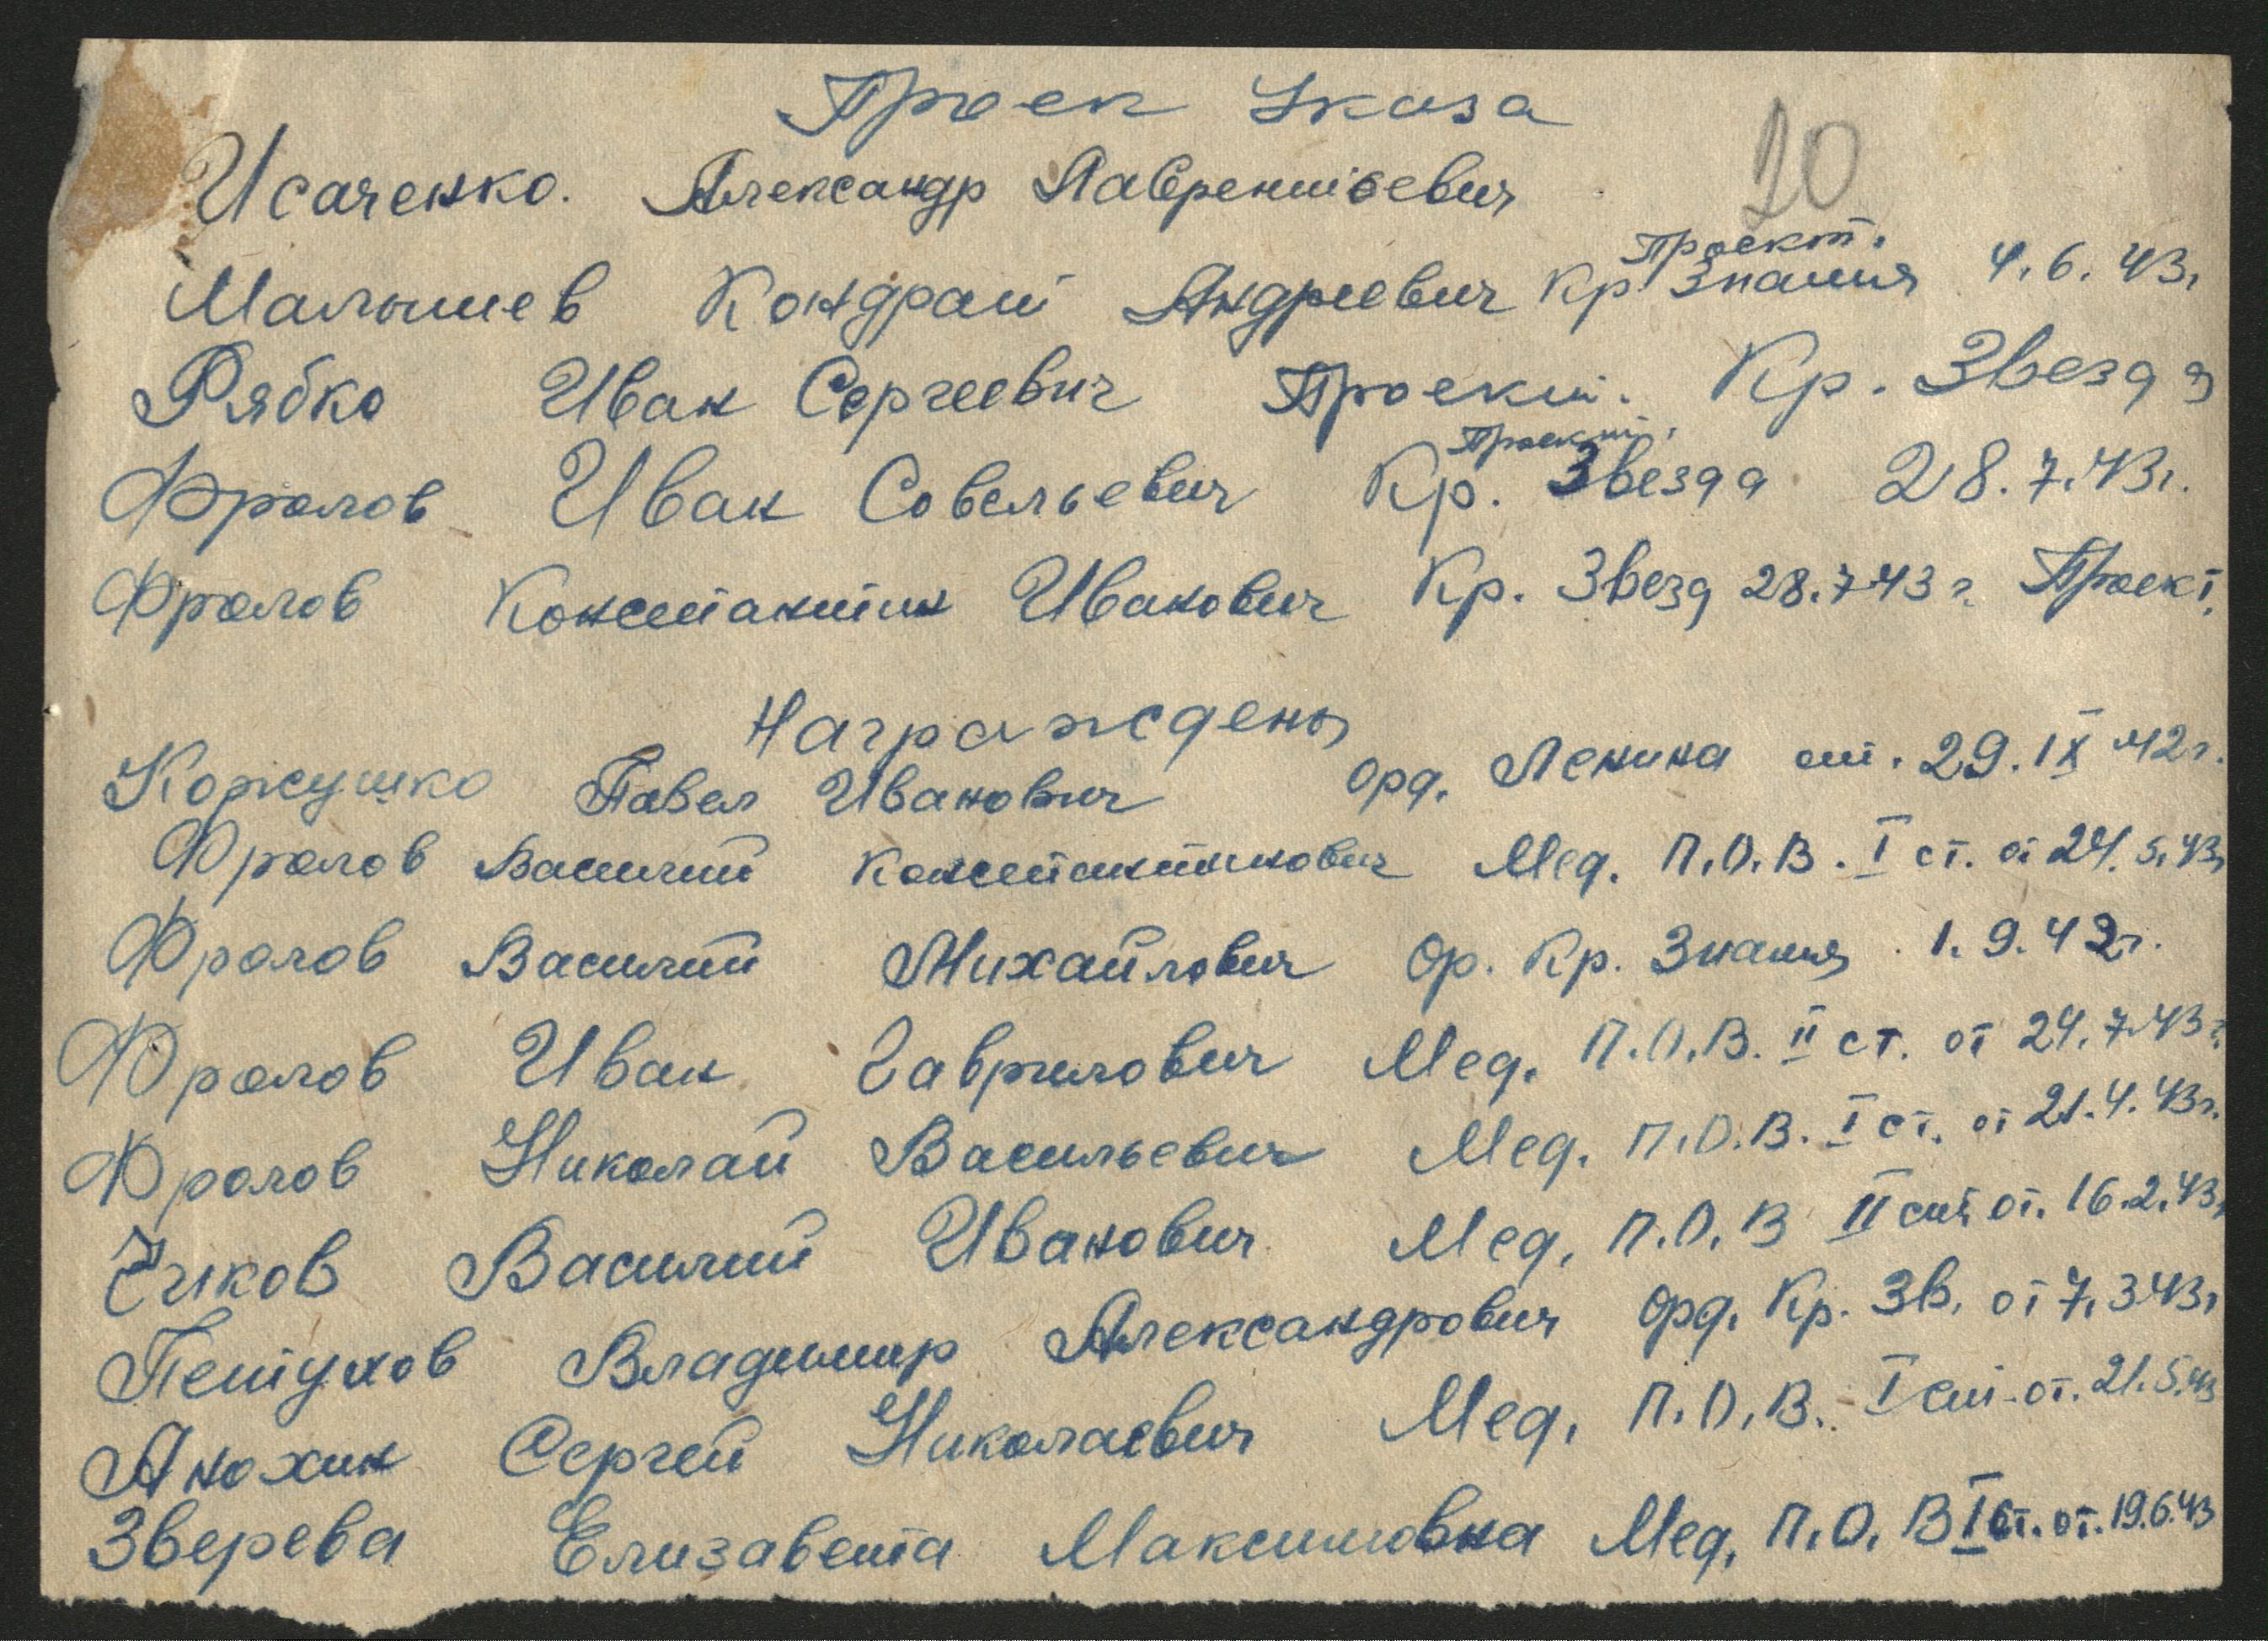 Проек Указа
20
Исаченко. Александр Лаврентьевич
Проект.
Малышев Кондрат Андреевич Кр. Знамя 4.6.43г
Рябко Иван Сергеевич Проект. Кр. Звезда
Проект.
Фролов Иван Совельевич Кр. Звезда 28.7.43г.
Фролов Константин Иванович Кр. Звезд 28.7.43 г. Проект.
Награждены
Кожушко Павел Иванович Орд. Ленина от. 29.IX 42г.
Фролов Василий Константинович Мед. П.О.В. I ст. от 24.5.43г
Фролов Василий Михайлович Ор. Кр. Знамя 1.9.42г.
Фролов Иван Гаврилович Мед. П.О.В. II ст. от 24.7.43г.
Фролов Николай Васильевич Мед. П.О.В. I ст. от 21.4.43г.
Василий Иванович Мед. П.О.В II ст. от. 16.2.43г
Петухов Владимир Александрович Орд. Кр. Зв. от 7.3.43г
Анохин Сергей Николаевич Мед. П.О.В. I ст. от. 21.5.43
Зверева Елизавета Максимовна Мед. П.О.В I ст. от. 19.6.43